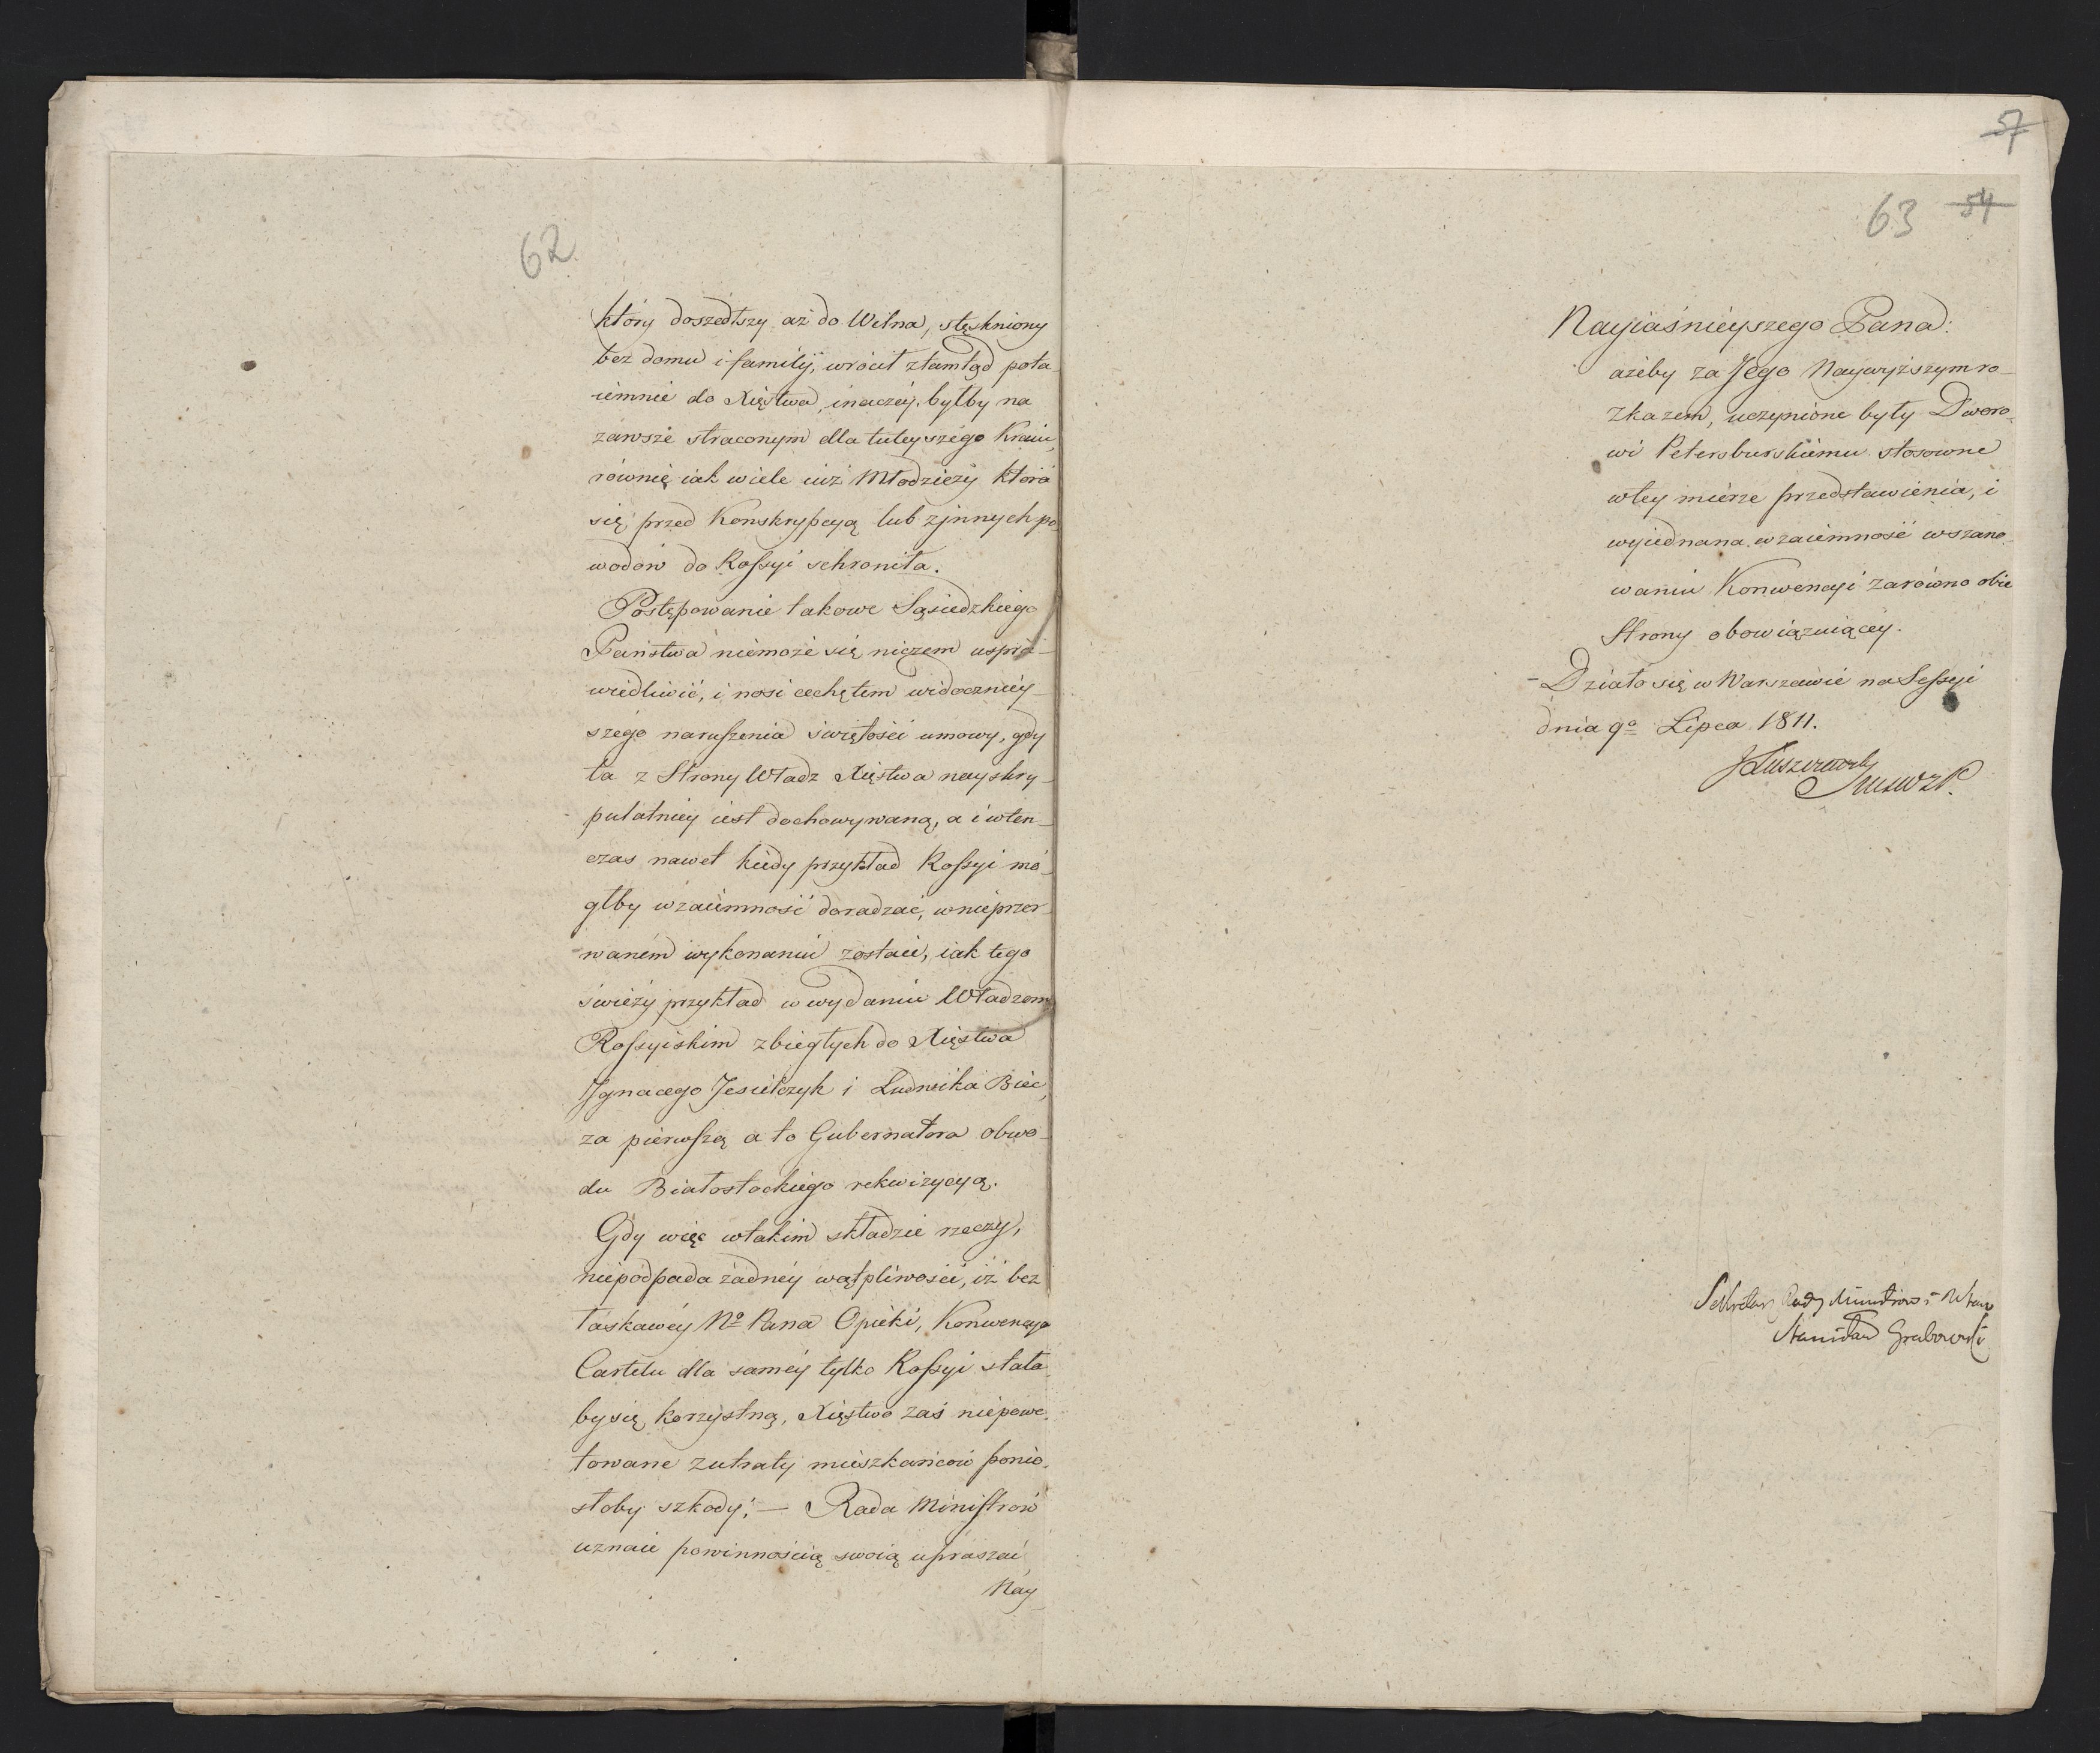 62
który doszedłszy aż do Wilna, stęskniony
bez domu i familij, wrócił ztamtąd pota-
iemnie do Xięstwa, inaczey byłby na
zawsze straconym dla tuteyszego Kraiu,
równie iak wiele iuż Młodzieży która
się przed Konskrypcyą lub zjnnych po-
wodów do Rossyi schroniła.
Postępowanie takowe Sąsiedzkiego
Państwa niemoże się niczem uspra-
wiedliwić, i nosi cechę tem widoczniey-
szego naruszenia świętości umowy, gdy
ta z Strony Władz Xięstwa nayskry-
pulatniey iest dochowywaną, a i wten-
czas nawet kiedy przykład Rossyi mó-
głby wzaiemność doradzać, w nieprzer-
wanem wykonaniu zostaie, iak tego
świeży przykład w wydaniu Władzom
Rossyiskim zbiegłych do Xięstwa
Ignacego Jesielczyk i Ludwika Biec,
za pierwszą a to Gubernatora obwo-
du Białostockiego rekwizycyą.
Gdy więc wtakim składzie rzeczy,
niepodpada żadney wątpliwości, iż bez
łaskawey No Pana Opieki, Konwencya
Cartelu dla samey tylko Rossyi stała
by się korzystną, Xięstwo zaś niepowe-
towane zutraty mieszkańców ponio-
słoby szkody; — Rada Ministrów
uznaie powinnością swoią upraszać
Nay-
57
63 54
Nayiaśnieyszego Pana:
ażeby za Jego Naywyższym ro-
zkazem, uczynione były Dworo-
wi Petersburskiemu stosowne
wtey mierze przedstawienia, i
wyiednana wzaiemność wszano-
waniu Konwencyi zarówno obie
Strony obowiązuiącey.
- Działo się w Warszawie na Sessyi
dnia 9o Lipca 1811.
JŁuszczewski
Sekretarz Rady Ministrow i Stanu
Stanisław Grabowski